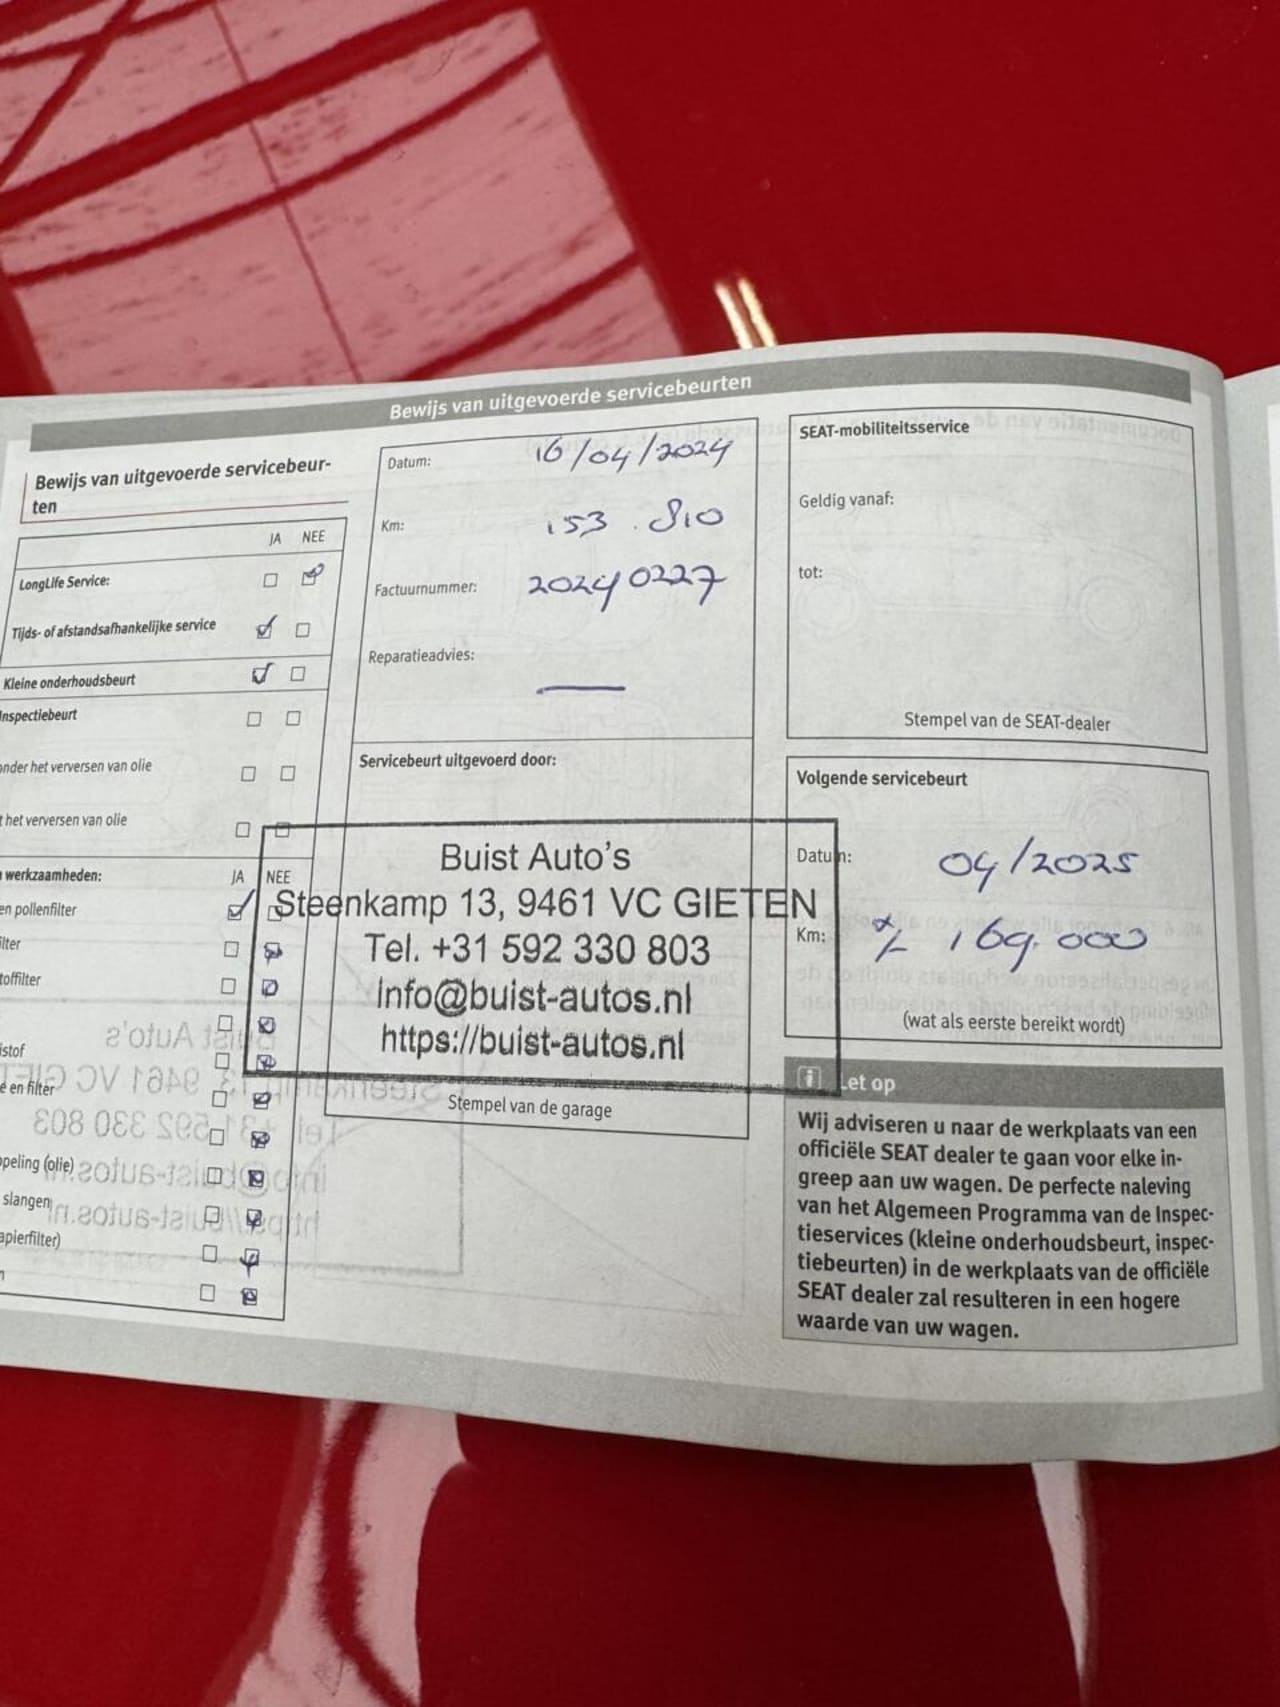 Bewijs van uitgevoerde servicebeurten
Bewijs van uitgevoerde servicebeur-
ten
JA NEE
LongLife Service:
Tijds- of afstandsafhankelijke service
Kleine onderhoudsbeurt
Inspectiebeurt
onder het verversen van olie
t het verversen van olie
werkzaamheden: JA NEE
en pollenfilter
ilter
toffilter
istof
e en filter
peling (olie)
slangen
apierfilter)
Datum: 16/04/2024
Km: 153.810
Factuurnummer: 20240227
Reparatieadvies: —
Servicebeurt uitgevoerd door:
Buist Auto's
Steenkamp 13, 9461 VC GIETEN
Tel. +31 592 330 803
info@buist-autos.nl
https://buist-autos.nl
Stempel van de garage
SEAT-mobiliteitsservice
Geldig vanaf:
tot:
Stempel van de SEAT-dealer
Volgende servicebeurt
Datum: 04/2025
Km: 169.000
(wat als eerste bereikt wordt)
i Let op
Wij adviseren u naar de werkplaats van een
officiële SEAT dealer te gaan voor elke in-
greep aan uw wagen. De perfecte naleving
van het Algemeen Programma van de Inspec-
tieservices (kleine onderhoudsbeurt, inspec-
tiebeurten) in de werkplaats van de officiële
SEAT dealer zal resulteren in een hogere
waarde van uw wagen.